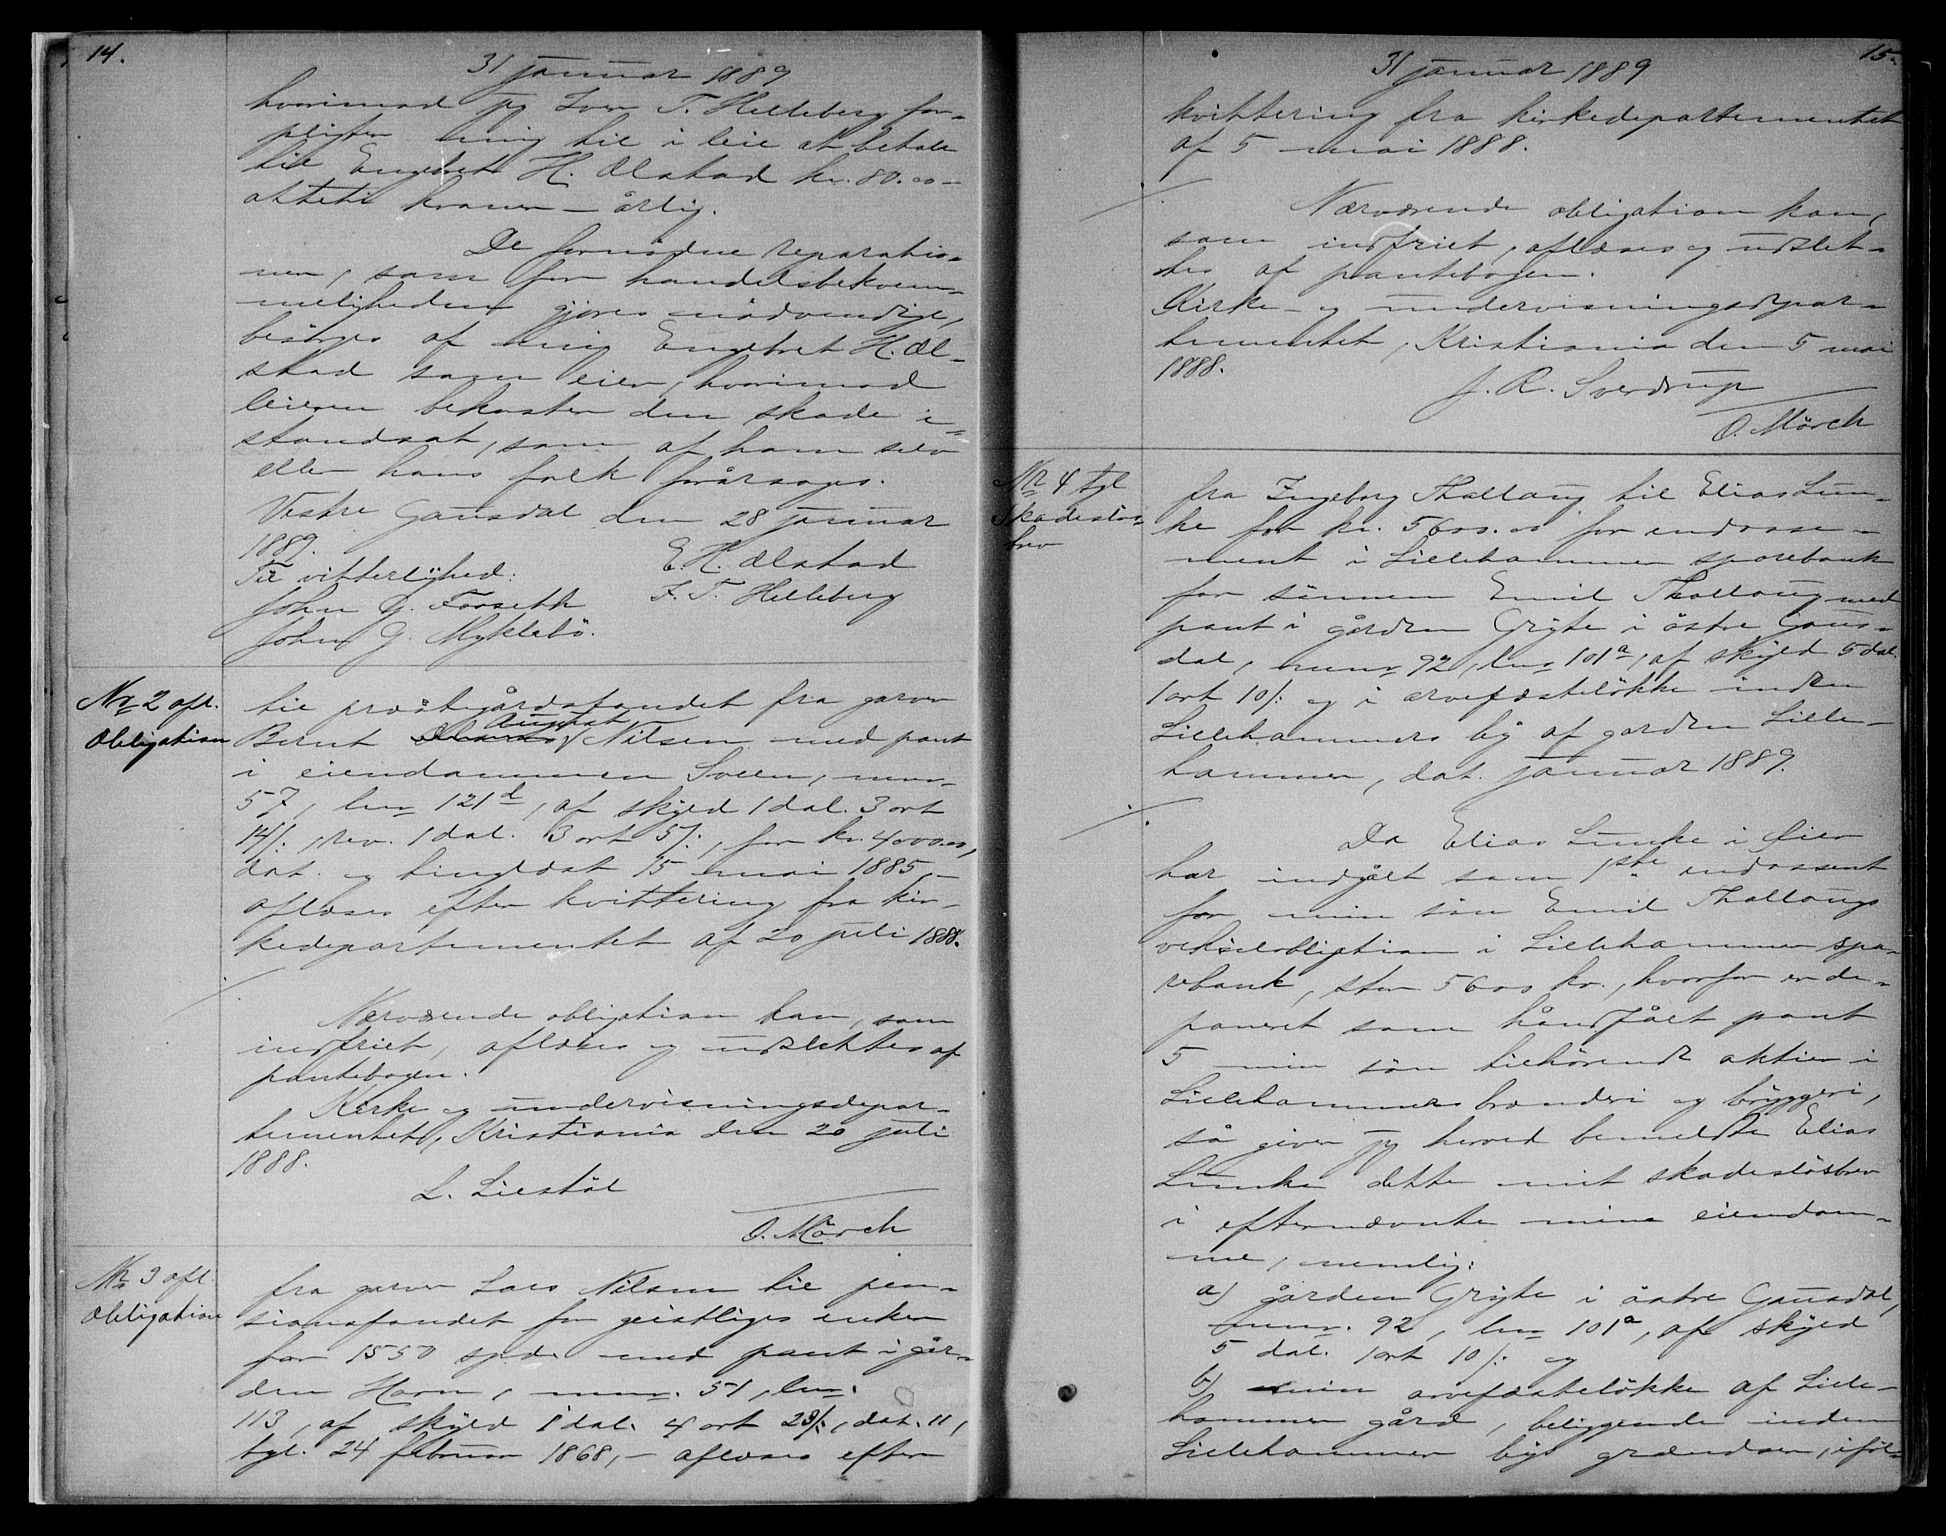 14.
31 januar 1889
hvorimod jeg Iver T. Helleberg for-
pligter mig til i leie at betale
til Engebret H. Ølstad kr. 80.00 –
otteti kroner – årlig.
De fornødne reparatio-
ner, som for handelsbekvem-
meligheden gjøres nødvendige,
besørges af mig Engebret H. Øl-
stad som eier, hvorimod
leieren bekoster den skade i-
standsat, som af ham selv
eller hans folk forårsages.
Vestre Gausdal den 28 januar
1889.
E. H. Ølstad
Til vitterlighed:
I. T. Helleberg
John G. Forseth
John G. Myklebö.
Nr 2 afl.
Obligation
til præstegårdsfondet fra garver
Bernt August Nilsen med pant
i eiendommen Sveen, mnr
57, lnr 121d, af skyld 1 dal. 3 ort
14 /:, rev. 1 dal. 3 ort 5 /:, for kr. 4000.00,
dat. og tinglæst 15 mai 1885, –
aflæses efter kvittering fra kir-
kedepartementet af 20 juli 1888.
Nærværende obligation kan, som
indfriet, aflæses og udslettes af
pantebogen.
Kirke og undervisningsdepar-
tementet, Kristiania den 20 juli
1888.
L. Liestöl
O. Mörch
Nr 3 afl.
Obligation
fra garver Lars Nilsen til pen-
sionsfondet for geistliges enker
for 1550 spd. med pant i går-
den Horn, mnr. 51, lnr.
113, af skyld 1 dal. 4 ort 23 /:, dat. 11,
tgl. 24 februar 1868, – aflæses efter
15.
31 januar 1889
kvittering fra kirkedepartementet
af 5 mai 1888.
Nærværende obligation kan,
som indfriet, aflæses og udslet-
tes af pantebogen.
Kirke- og undervisningsdepar-
tementet, Kristiania den 5 mai
1888.
J. R. Sverdrup
O. Mörch
Nr 4 tgl
Skadeslös-
brev
fra Ingeborg Thallaug til Elias Lun-
ke for kr. 5600.00 for endosse-
ment i Lillehammer sparebank
for sönnen Emil Thallaug med
pant i gården Gryte i östre Gaus-
dal, mnr 92, lnr 101a, af skyld 5 dal.
1 ort 10 /: og i arvefæstelökke inden
Lillehammers by af garden Lille-
hammer, dat. januar 1889.
Da Elias Lunke i Öier
har indgået som 1ste endossent
for min sön Emil Thallaugs
vekselobligtion i Lillehammer spa-
rebank, stor 5600 kr., hvorfor er de-
poneret som håndfået pant
5 min sön tilhörende aktier i
Lillehammers brænderi og bryggeri,
så giver jeg herved bemeldte Elias
Lunke dette mit skadeslösbrev
i efternævnte mine eiendom-
me, nemlig:
a) gården Gryte i östre Gausdal,
mnr. 92, lnr 101a, af skyld
5 dal. 1 ort 10 /: og
b) min arvefæstelökke af Lille-
hammer gård, beliggende inden
Lillehammer bys grændser, iföl-